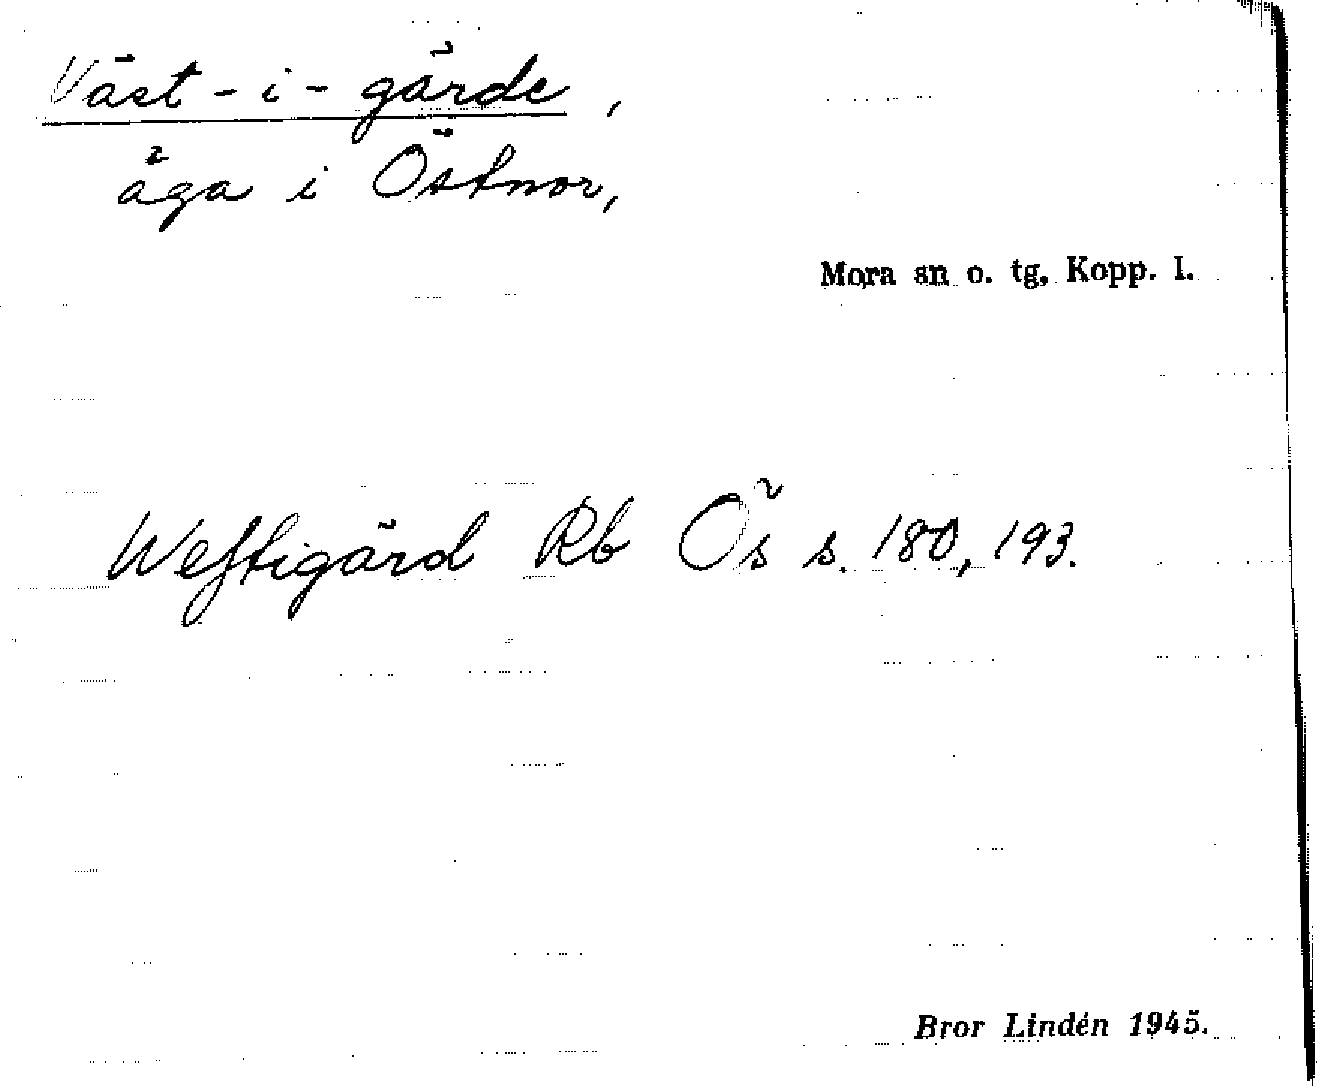 Väst-i-gärde,
äga i Östnor,
Mora sn o. tg, Kopp. l.
Westigärd Rb Ös s. 180, 193.
Bror Lindén 1945.